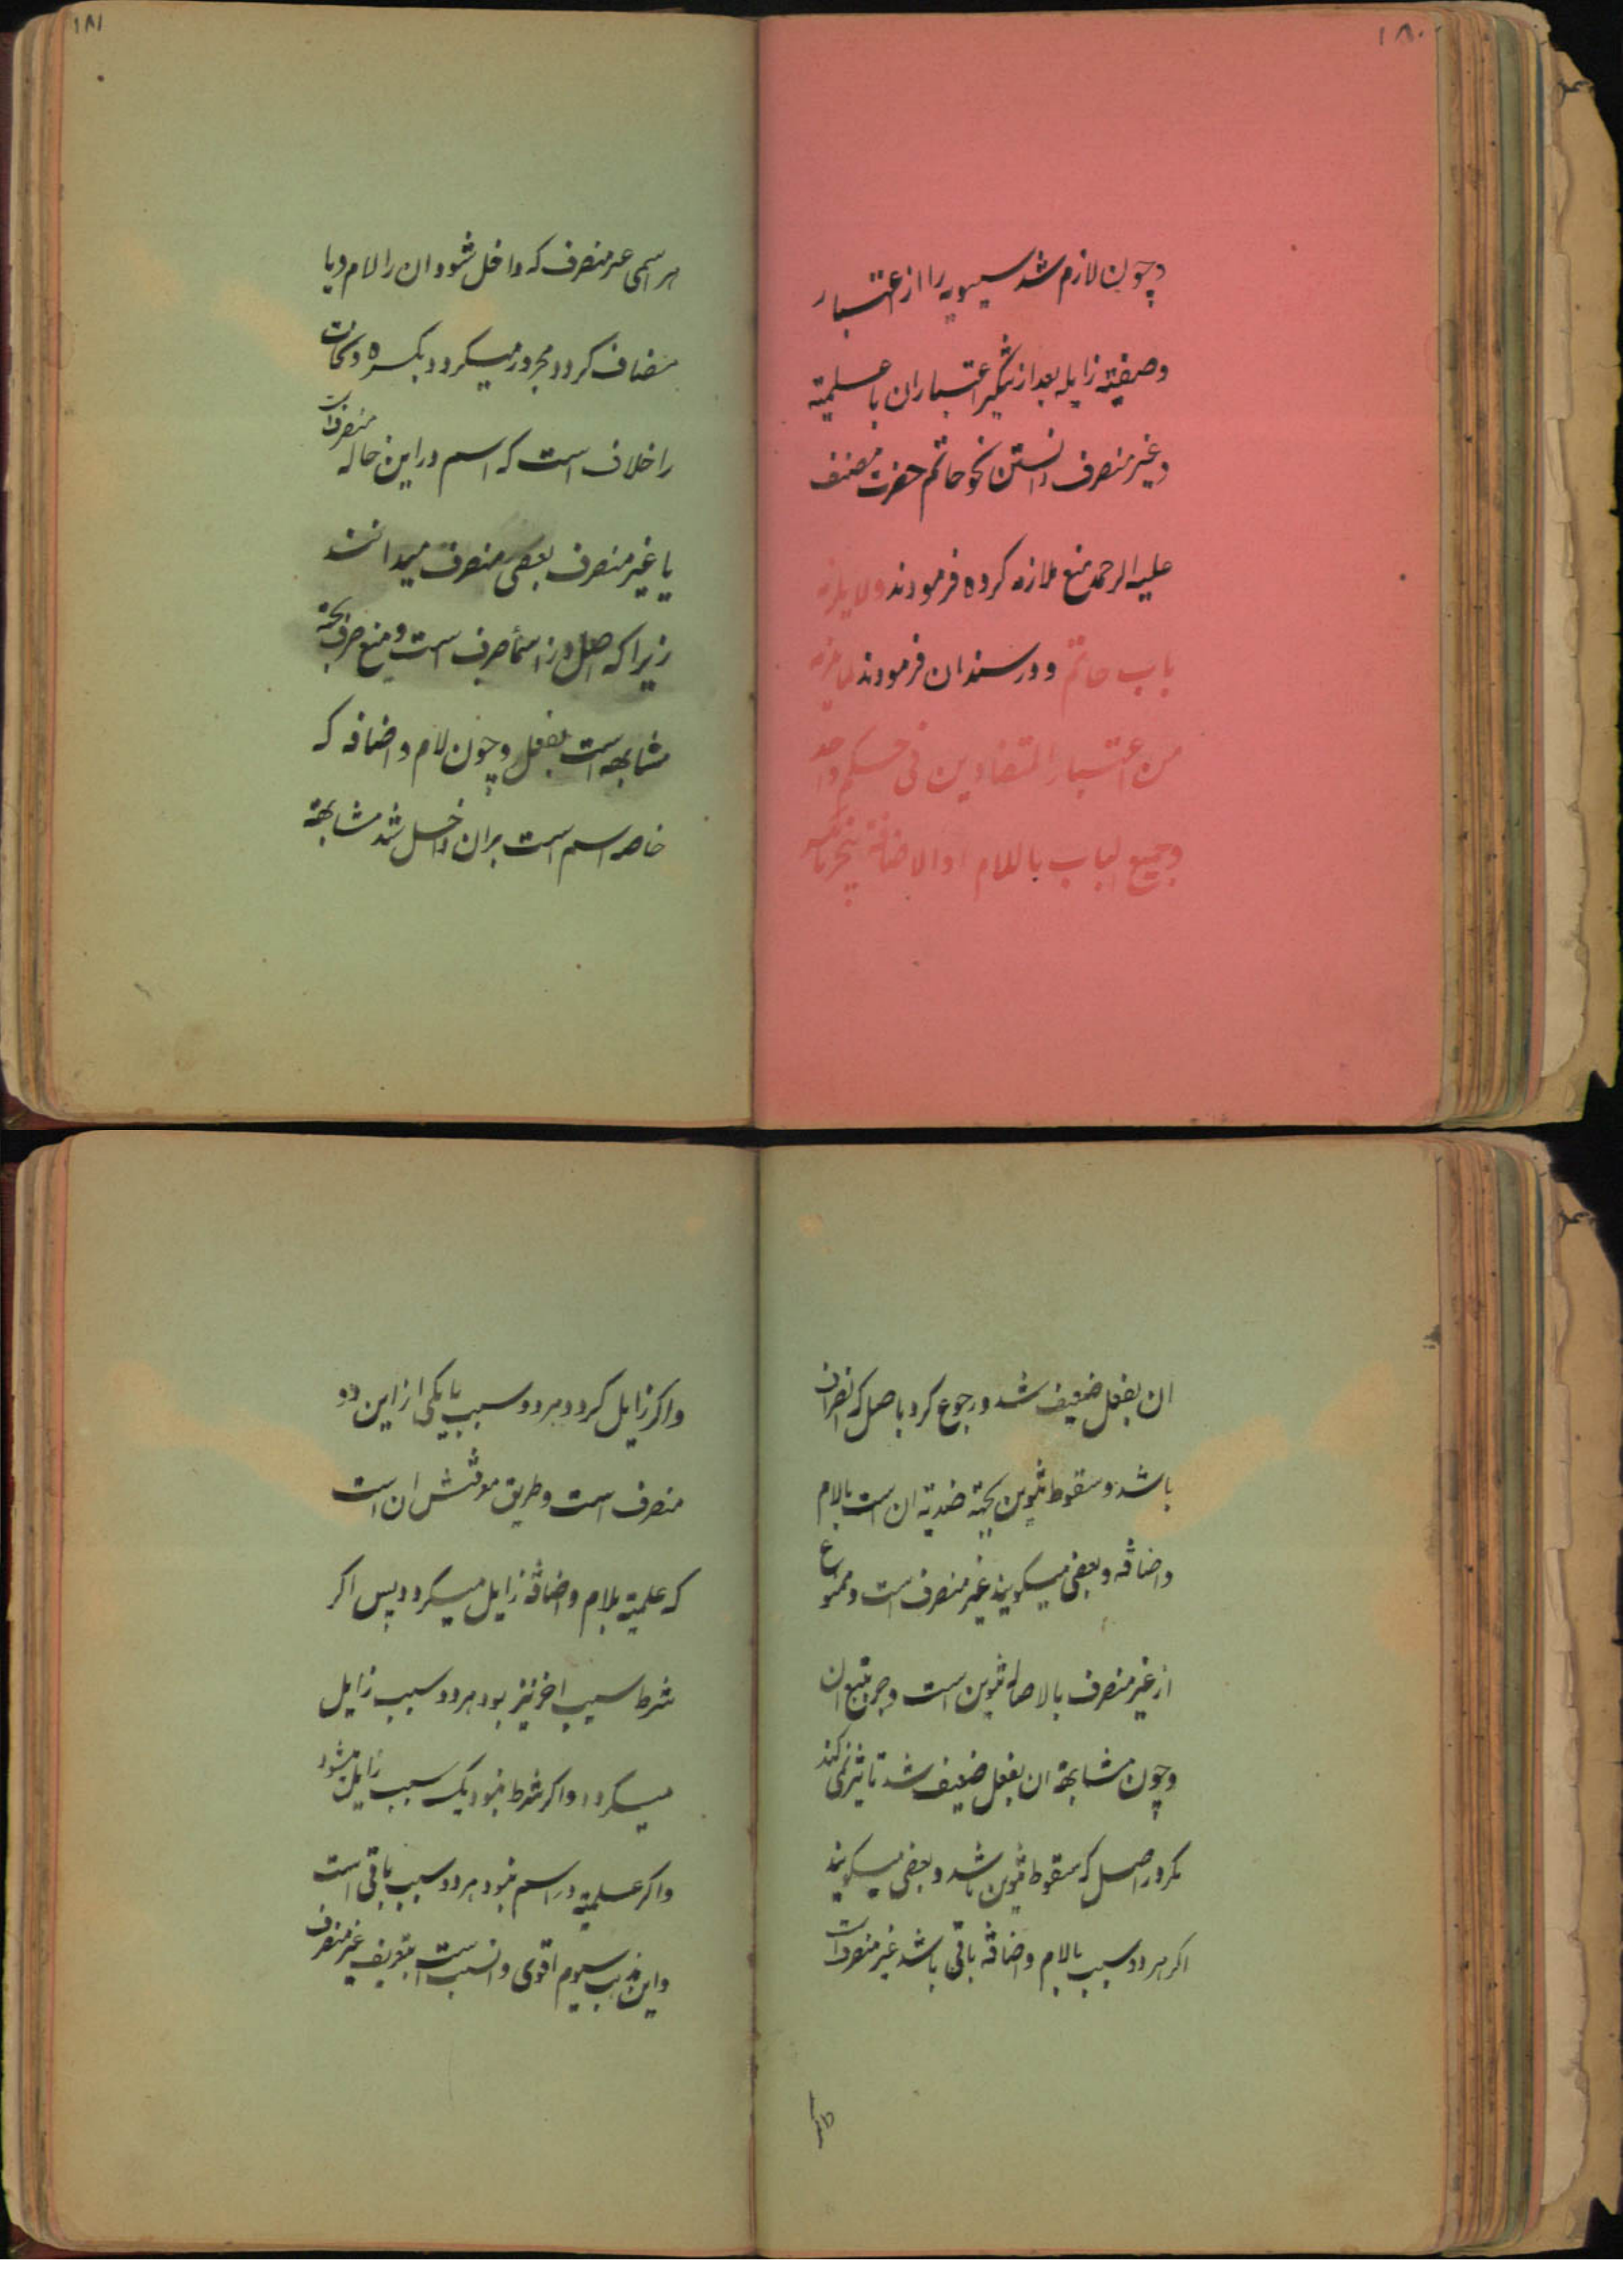 ١٨٠
وچون لازم شد سیبویه را از اعتبار
وصفیته زایله بعد از تنکیر اعتبار ان با علمیته
وغیر منصرف دانستن نحو حاتم حضرت مصنف
علیه الرحمه منع ملازمه کرده فرمودند ولا یلزمه
باب حاتم ودر سند ان فرمودند لما یلزم
من اعتبار المتضادین فی حکم واحد
وجمیع الباب باللام او الاضافة ینجر بالکسر
١٨١
هر اسمی غیر منصرف که داخل شود ان را لام ویا
مضاف کردد مجرور میکردد بکسره ونحات
را خلاف است که اسم در این حاله منصرف است
یا غیر منصرف بعضی منصرف میدانند
زیرا که اصل در اسمأ صرف است ومنع صرف بجهة
مشابهه است بفعل وچون لام واضافه که
خاصه اسم است بر ان داخل شد مشابهة
ان بفعل ضعیف شد ورجوع کرد باصل که انصراف
باشد وسقوط تنوین بجهته ضدیته ان است بالام
واضافه وبعضی میکویند غیر منصرف است وممنوع
از غیر منصرف بالاصاله تنوین است وجر بتبع ان
وچون مشابهة ان بفعل ضعیف شد تاثیر نمی کند
مکر در اصل که سقوط تنوین باشد وبعضی میکویند
اکر هر دو سبب بالام واضافه باقی باشد غیر منصرف است
واکر زایل کردد هر دو سبب یا یکی از این دو
منصرف است وطریق موقتش ان است
که علمیته بلام واضافه زایل میکردد پس اکر
شرط سبب اخر نیز بود هر دو سبب زایل
میکردد واکر شرط نبود یک سبب زایل میشود
واکر علمیته در اسم نبود هر دو سبب باقی است
واین مذهب سیوم اقوی وانسب است بتعریف غیر منصرف